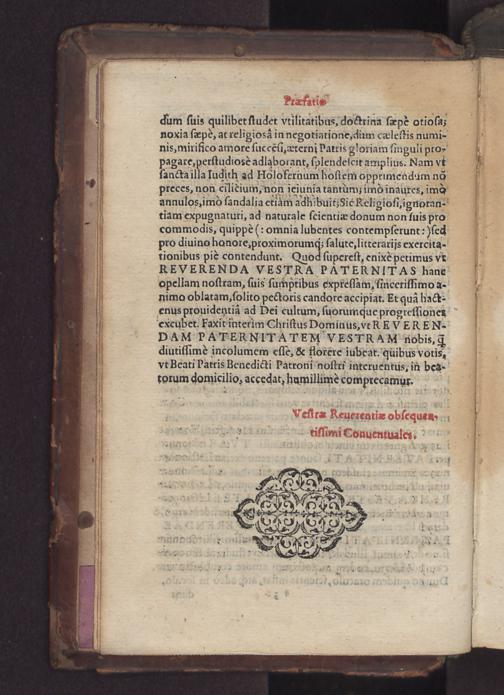 Præfatio
dum suis quilibet studet vtilitatibus, doctrina sæpè otiosa,
noxia sæpè, at religiosâ in negotiatione, dum cælestis numi-
nis, mirifico amore succēsi, æterni Patris gloriam singuli pro-
pagare, perstudiosè adlaborant, splendescit amplius. Nam vt
sancta illa Iudith ad Holofernum hostem opprimendum nō
preces, non cilicium, non ieiunia tantùm; imò inaures, imò
annulos, imò sandalia etiam adhibuit; Sic Religiosi, ignoran-
tiam expugnaturi, ad naturale scientiæ donum non suis pro
commodis, quippè (: omnia lubentes contempserunt :) sed
pro diuino honore, proximorumq; salute, litterarijs exercita-
tionibus piè contendunt. Quod superest, enixè petimus vt
REVERENDA VESTRA PATERNITAS hanc
opellam nostram, suis sumptibus expressam, sincerissimo a-
nimo oblatam, solito pectoris candore accipiat. Et quâ hact-
enus prouidentiâ ad Dei cultum, suorumque progressiones
excubet. Faxit interim Christus Dominus, vt REVEREN-
DAM PATERNITATEM VESTRAM nobis, q̃
diutissimè incolumem esse, & florere iubeat. quibus votis,
vt Beati Patris Benedicti Patroni nostri interuentus, in bea-
torum domicilio, accedat, humillimè comprecamur.
Vestræ Reuerentiæ obsequen-
tissimi Conuentuales.